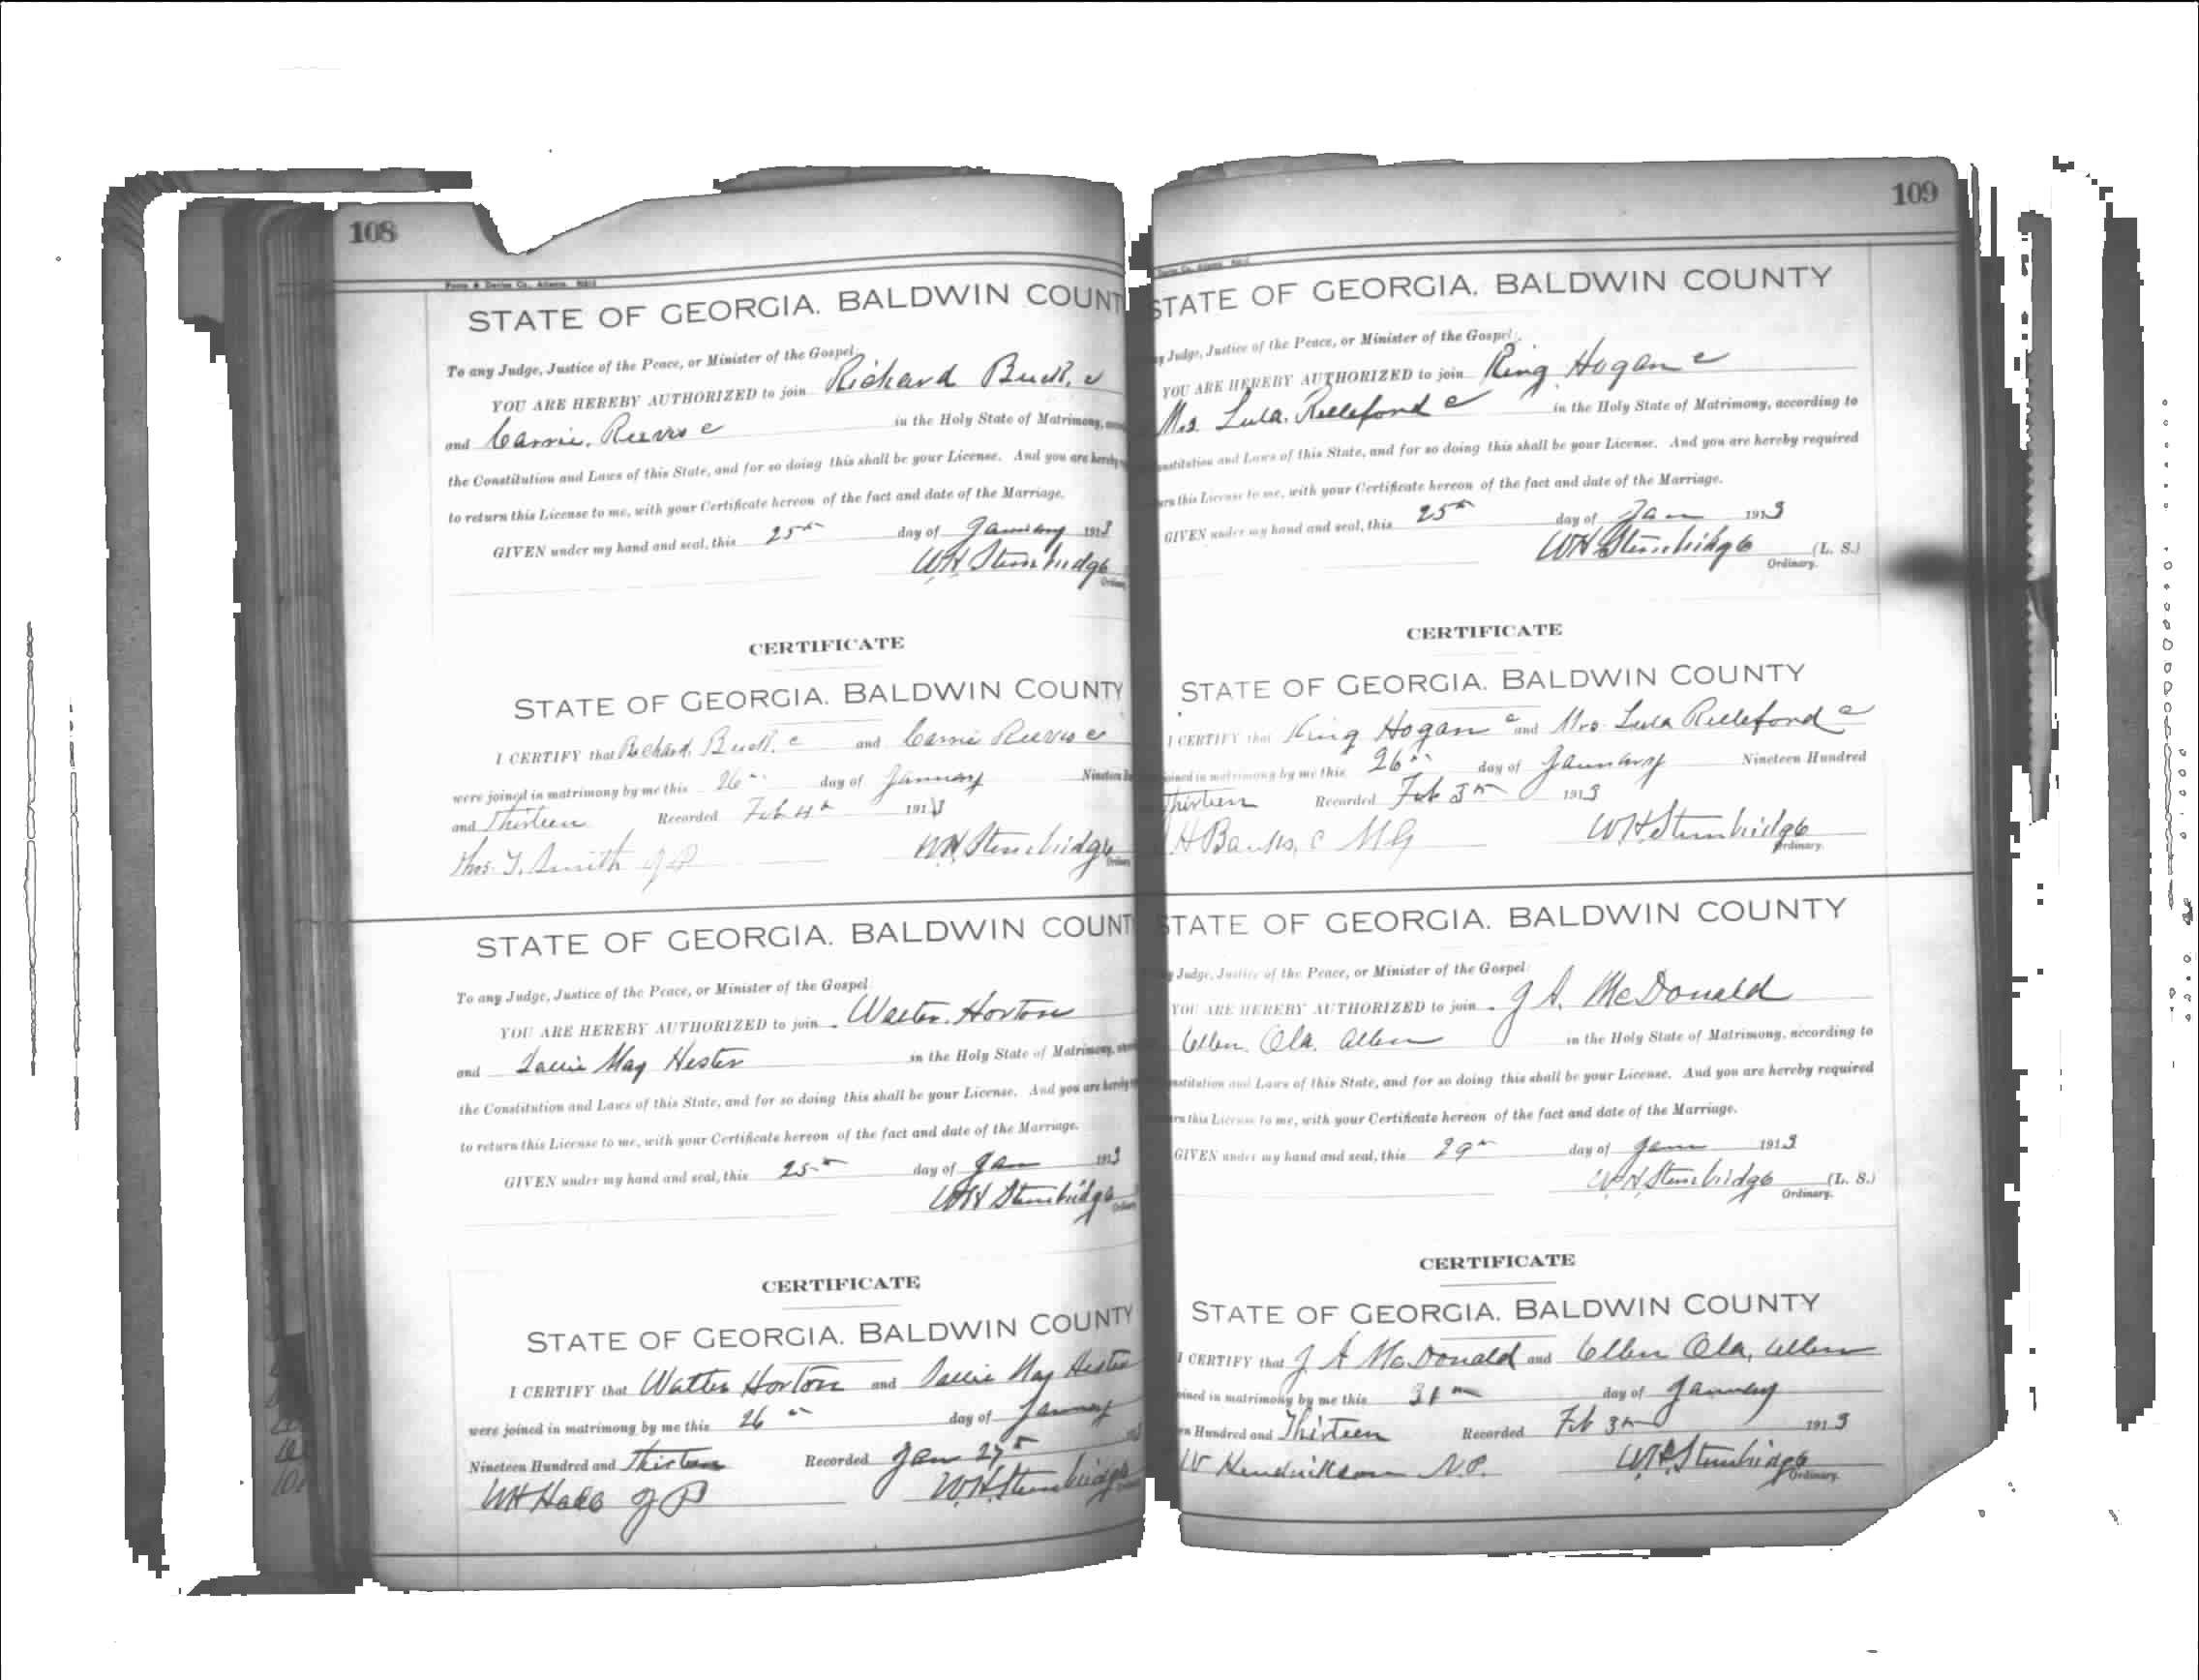 108
STATE OF GEORGIA. BALDWIN COUNT
To any Judge, Justice of the Peace, or Minister of the Gospel:
YOU ARE HEREBY AUTHORIZED to join Richard
and Carrie Reeves c in the Holy State of Matrimony,
the Constitution and Laws of this State, and for so doing this shall be your License. And you are hereby
to return this License to me, with your Certificate hereon of the fact and date of the Marriage.
GIVEN under my hand and seal, this 25th day of January 1913
WH Stembridge
CERTIFICATE
STATE OF GEORGIA. BALDWIN COUNTY
I CERTIFY that Richard c and Carrie Reeves c
were joined in matrimony by me this 26th day of January
and Thirteen Recorded Feb 4th 1913
Thos. T. Smith JP WH Stembridge
STATE OF GEORGIA. BALDWIN COUNT
To any Judge, Justice of the Peace, or Minister of the Gospel
YOU ARE HEREBY AUTHORIZED to join Walter Horton
and Sallie May Hester in the Holy State of Matrimony,
the Constitution and Laws of this State, and for so doing this shall be your License. And you are hereby
to return this License to me, with your Certificate hereon of the fact and date of the Marriage.
GIVEN under my hand and seal, this 25th day of Jan 1913
WH Stembridge
CERTIFICATE
STATE OF GEORGIA. BALDWIN COUNTY
I CERTIFY that Walter Horton and Sallie May Hester
were joined in matrimony by me this 26th day of January
Nineteen Hundred and Thirteen Recorded Jan 27th
WH Hall JP WH Stembridge
109
STATE OF GEORGIA. BALDWIN COUNTY
Judge, Justice of the Peace, or Minister of the Gospel:
YOU ARE HEREBY AUTHORIZED to join King Hogan c
Mrs. Lula Relleford c in the Holy State of Matrimony, according to
and Laws of this State, and for so doing this shall be your License. And you are hereby required
this License to me, with your Certificate hereon of the fact and date of the Marriage.
GIVEN under my hand and seal, this 25th day of Jan 1913
WH Stembridge (L. S.)
Ordinary.
CERTIFICATE
STATE OF GEORGIA. BALDWIN COUNTY
I CERTIFY that King Hogan c and Mrs. Lula Relleford c
joined in matrimony by me this 26th day of January Nineteen Hundred
Thirteen Recorded Feb 3rd 1913
H Banks, c MG WH Stembridge
Ordinary.
STATE OF GEORGIA. BALDWIN COUNTY
Judge, Justice of the Peace, or Minister of the Gospel
YOU ARE HEREBY AUTHORIZED to join J A. McDonald
Ellen Ola Allen in the Holy State of Matrimony, according to
and Laws of this State, and for so doing this shall be your License. And you are hereby required
this License to me, with your Certificate hereon of the fact and date of the Marriage.
GIVEN under my hand and seal, this 29th day of Jan 1913
WH Stembridge (L. S.)
Ordinary.
CERTIFICATE
STATE OF GEORGIA. BALDWIN COUNTY
I CERTIFY that J A McDonald and Ellen Ola Allen
joined in matrimony by me this 31st day of January
Hundred and Thirteen Recorded Feb 3rd 1913
W Hendrickson N.P. WH Stembridge
Ordinary.